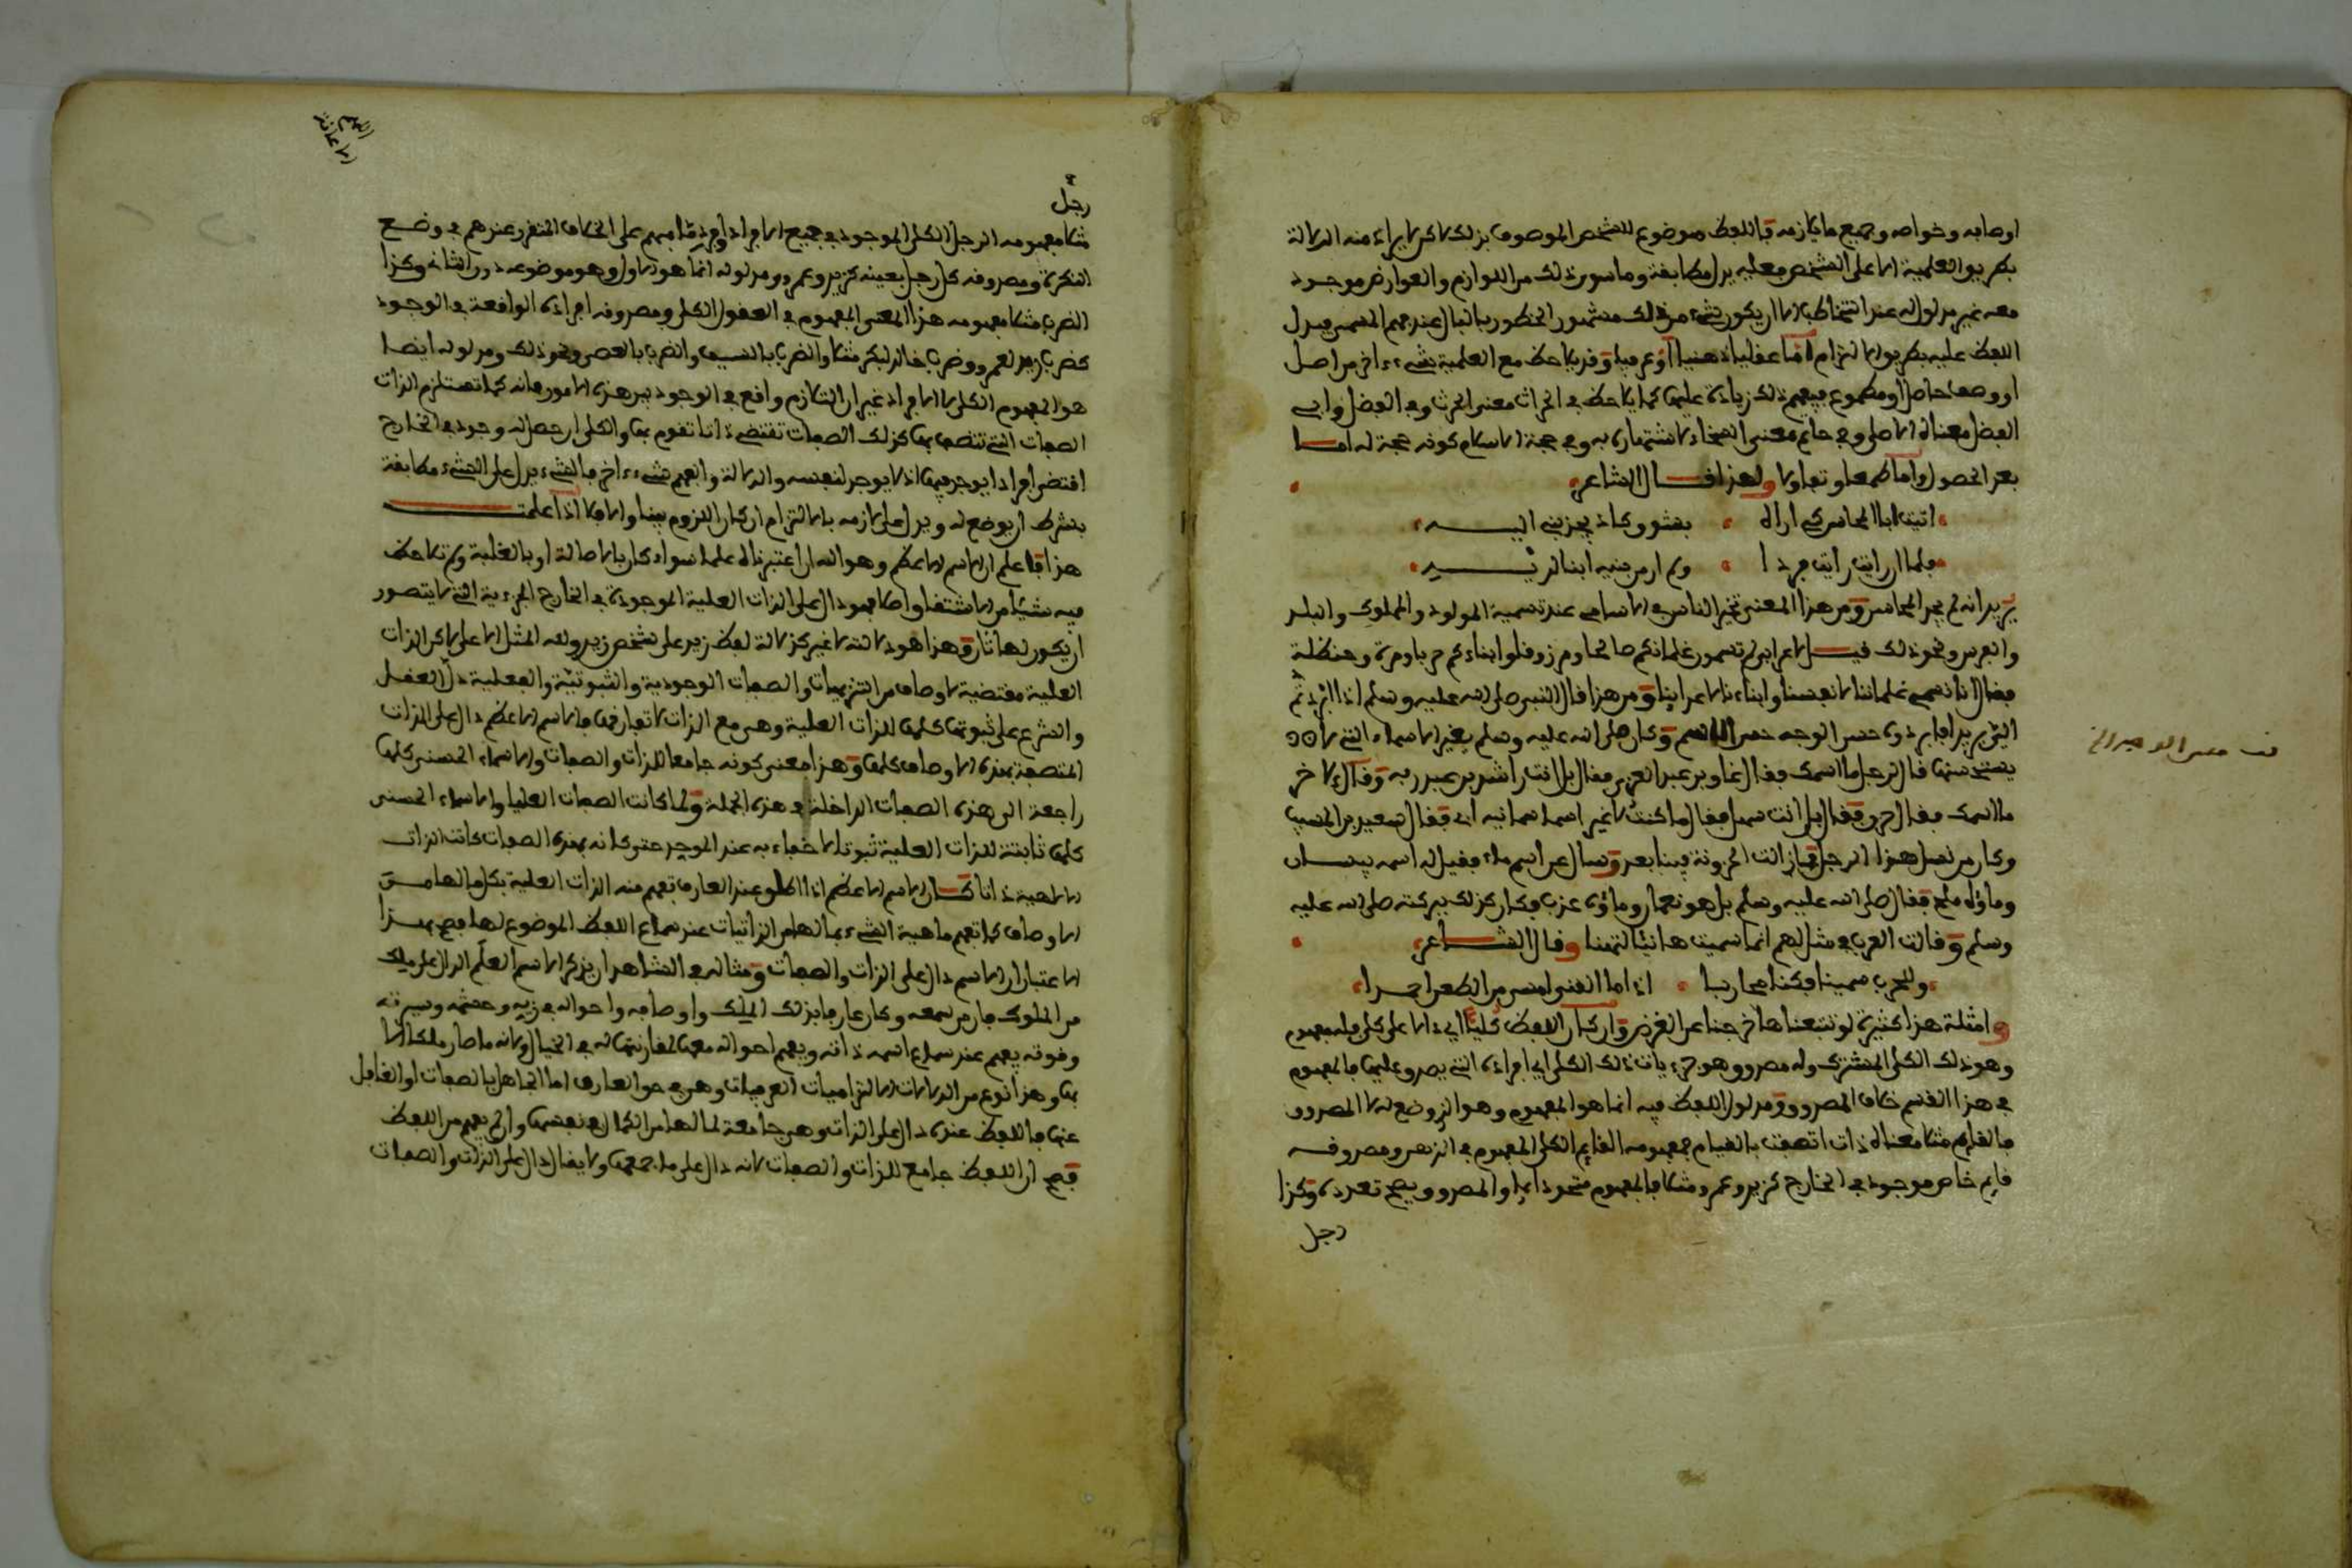 اوصابه وخواصه وجميع ما يلازمه فاللفظ موضوع للشخص الموصوف بذلك لاكن لا يراد منه الدلالة
بطريق العلمية الا على الشخص فعليه يدل مطابقة وما سوى ذلك من اللوازم والعوارض موجود
معه غير مدلول له عند التخاطب الا ان يكون شيء من ذلك مشهور الخطور بالبال عند فهم المسمى فيدل
اللفظ عليه بطريق الالتزام اما عقليا ذهنيا او عرفيا وقد يلاحظ مع العلمية شيء ءاخر من اصل
او وصف حاصل او مطموع فيفهم ذلك زيادة عليها كما يلاحظ في الحراث معنى الحرث وفي الفضل وابي
الفضل معناه الاصلي وفي حاتم معنى السخاء لاشتهاره به وفي حجة الاسلام كونه حجة له اما
بعد الحصول واما طمعا وتفاؤلا ولهذا قال الشاعر
اتيت ابا المحاسن كي اراه بشوق كاد يجذبني اليه
فلما ان رايت رايت فردا ولم ار من بنيه ابنا لديه
يريد انه لم يجد المحاسن ومن هذا المعنى تخير الناس في الاسامي عند تسمية المولود والمملوك والبلد
والعرس ونحو ذلك قيل لاعرابي لم تسمون غلمانكم صالحا ومرزوقا وابناءكم حربا ومرة وحنظلة
فقال انا نسمي غلماننا لانفسنا وابناءنا لاعدائنا ومن هذا قال النبي صلى الله عليه وسلم اذا ابردتم
الي بريدا فابردوه حسن الوجه حسن الاسم وكان صلى الله عليه وسلم يغير الاسماء التي لا
يستحسنها قال لرجل ما اسمك فقال غاو بن عبد العزى فقال بل انت راشد بن عبد ربه وقال لاخر
ما اسمك فقال حزن فقال بل انت سهل فقال ما كنت لاغير اسما سمانيه ابي فقال سعيد بن المسيب
وكان من نسل هذا الرجل فما زالت الحزونة فينا بعد وسال عن اسم ماء فقيل له اسمه بيسان
وماؤه ملح فقال صلى الله عليه وسلم بل هو نعمان وماؤه عذب فكان كذلك ببركته صلى الله عليه
وسلم وقالت العرب في مثل لهم انما سميت هانئا لتهنا وقال الشاعر
وللحرب سمينا فكنا محاربا اذا ما القنى امسى من الطعن احمرا
وامثلة هذا كثيرة لو تتبعناها خرجنا عن الغرض وان كان اللفظ كليا اي دالا على كلي فله مفهوم
وهو ذلك الكلي المشترك وله مصدوق وهو جزءيات ذلك الكلي اي افراده التي يصدق عليها فالمفهوم
في هذا القسم خلاف المصدوق ومدلول اللفظ فيه انما هو المفهوم وهو الذي وضع له لا المصدوق
فالقايم مثلا معناه ذات اتصفت بالقيام فمفهومه القايم الكلي المفهوم في الذهن ومصدوقه
قايم خاص موجود في الخارج كزيد وعمرو مثلا فالمفهوم متحد ابدا والمصدوق يصح تعدده وكذا
رجل
رجل
مثلا مفهومه الرجل الكلي الموجود في جميع الافراد او فرد ما مبهم على الخلاف المتقرر عندهم في وضع
النكرة ومصدوقه كل رجل بعينه كزيد وعمرو ومدلوله انما هو الاول وهو موضوعه دون الثاني وكذا
الضرب مثلا مفهومه هذا المعنى المفهوم في العقول الكلي ومصدوقه افراده الواقعة في الوجود
كضرب زيد لعمرو وضرب خالد لبكر مثلا والضرب بالسيف والضرب بالعصى ونحو ذلك ومدلوله ايضا
هو المفهوم الكلي لا الافراد غير ان التلازم واقع في الوجود بين هذه الامور فانه كما تستلزم الذات
الصفات التي تتصف بها كذلك الصفات تقتضي ذاتا تقوم بها والكلي ان حصل له وجود في الخارج
اقتضى افرادا يوجد فيها اذ لا يوجد لنفسه والدلالة والفهم شيء ءاخر فالشيء يدل على الشيء مطابقة
بشرط ان يوضع له ويدل على لازمه بالالتزام ان كان اللزوم بينا والا فلا اذا علمت
هذا فاعلم ان الاسم الاعظم وهو الله ان اعتبرناه علما سواء كان بالاصالة او بالغلبة ولم نلاحظ
فيه شيئا من الاشتقاق اصلا فهو دال على الذات العلية الموجودة في الخارج الجزءية التي لا يتصور
ان يكون لها ثان وهذا هو دلالته لا غير كدلالة لفظ زيد على شخص زيد ولله المثل الاعلى لاكن الذات
العلية مقتضية لاوصاف من التنزيهات والصفات الوجودية والثبوتية والفعلية دل العقل
والشرع على ثبوتها كلها للذات العلية وهي مع الذات لا تفارقها فالاسم الاعظم دال على الذات
المتصفة بهذه الاوصاف كلها وهذا معنى كونه جامعا للذات والصفات والاسماء الحسنى كلها
راجعة الى هذه الصفات الداخلة في هذه الجملة ولما كانت الصفات العليا والاسماء الحسنى
كلها ثابتة للذات العلية ثبوتا لا خفاء به عند الموحد حتى كانه بهذه الصفات كانت الذات
الالهية ذاتا كان الاسم الاعظم اذا اطلق عند العارف تفهم منه الذات العلية بكل ما لها من
الاوصاف كما تفهم ماهية الشيء بما لها من الذاتيات عند سماع اللفظ الموضوع لها فصح بهذا
الاعتبار ان الاسم دال على الذات والصفات ومثاله في الشاهد ان يذكر الاسم العلم الدال على ملك
من الملوك فان من سمعه وكان عارفا بذلك الملك واوصافه واحواله في زيه وحشمه وسيرته
وقوته يفهم عند سماع اسمه ذاته ويفهم احواله معها لمقارنتها له في الخيال ولانه ما صار ملكا الا
بها وهذا نوع من الدلالات الالتزاميات العرفيات وهي في حق العارف اما الجاهل بالصفات او الغافل
عنها فاللفظ عنده دال على الذات وهي جامعة لما لها من الكمال في نفسها وان لم يفهم من اللفظ
فصح ان اللفظ جامع للذات والصفات لانه دال على ما جمعها ولا يقال دال على الذات والصفات